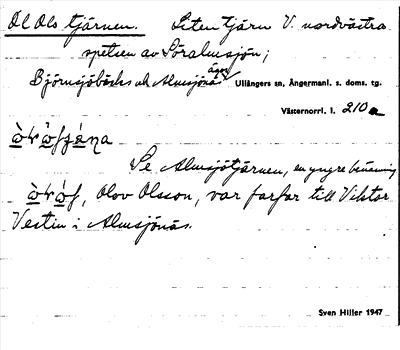 Ol Ols tjärnen. Liten tjärn V. nordvästra
spetsen av Söralmsjön;
Björnsjöbäcks och Almsjönäs ägor Ullångers sn, Ångermanl. s. doms. tg.
Västernorrl. l. 210 a
Se Almsjötjärnen, en yngre benämning
Olov Olsson, var farfar till Viktor
Vestin i Almsjönäs.
Sven Hiller 1947